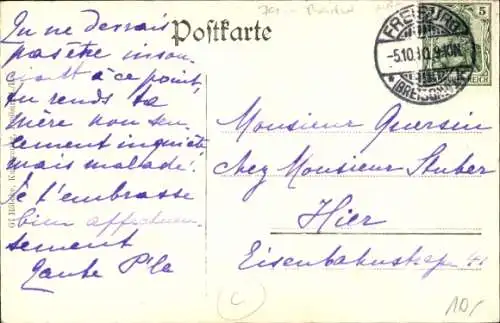 Tu ne devrais
pas être insou-
ciant à ce point,
tu rends ta
mère non seu-
lement inquiète
mais malade!
Je t'embrasse
bien affectueu-
sement
Tante
Postkarte
FREIBURG
-5.10.10. 9-10N.
* (BREISGAU)
5
REICH
Monsieur Quersin
chez Monsieur Stuber
Hier
Eisenbahnstraße 41
10/